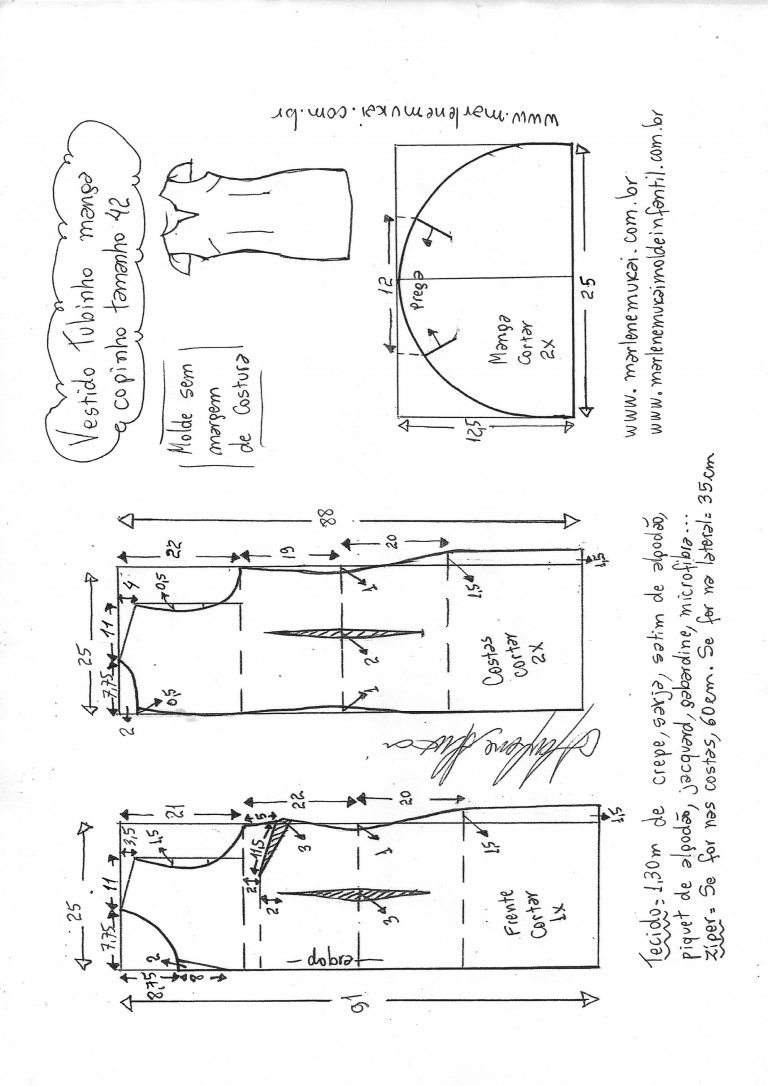 Vestido Tubinho manga
copinho tamanho 42
Molde sem
margem
de costura
www.marlenemukai.com.br
12
Prega
Manga
cortar
2x
12,5
25
www.marlenemukai.com.br
www.marlenemukaimoldeinfantil.com.br
88
22
19
20
25
4
11
0,5
7,75
2
0,5
1
2
1
1,5
1,5
Costas
cortar
2x
21
22
20
25
3,5
11
1,5
5
11,5
3
2
2
7,75
8,75
2
8
1
3
1,5
1,5
dobra
Frente
Cortar
1x
91
Tecido = 1,30m de crepe, sarja, satim de algodão,
piquet de algodão, jacquard, gabardine, microfibra...
zíper = Se for nas costas, 60cm. Se for na lateral = 35cm